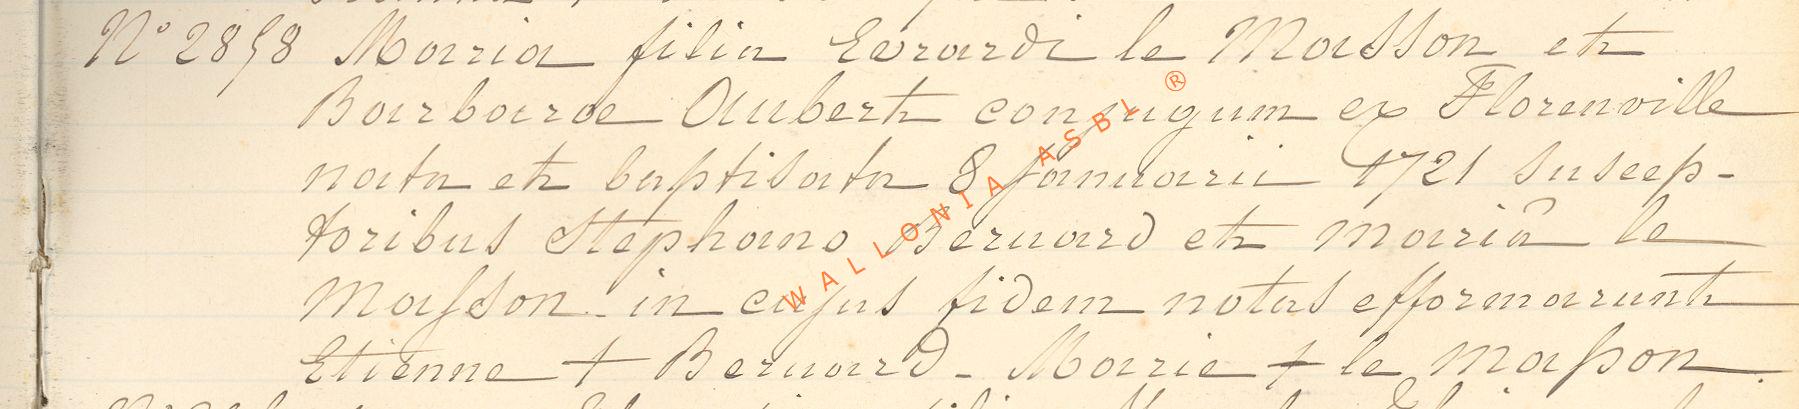 N° 2858 Maria filia Evrardi le Masson et
Barbarae Aubert conjugum ex Florenville
nata et baptisata 8 januarii 1721 suscep-
toribus Stephano Bernard et mariâ le
Masson - in cujus fidem notas efformarunt
Etienne + Bernard - Marie + le Masson.
WALLONIA ASBL ®